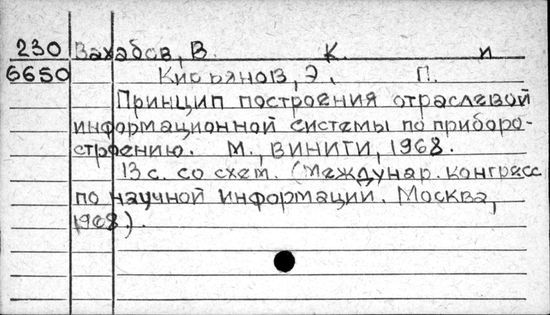 230 Вахабов, В. К. и
6650 Кирьянов, Э. П.
Принцип построения отраслевой
информационной системы по приборо-
строению. М., ВИНИТИ, 1968.
13 с. со схем. (Междунар. конгресс
по научной информации. Москва,
1968.).